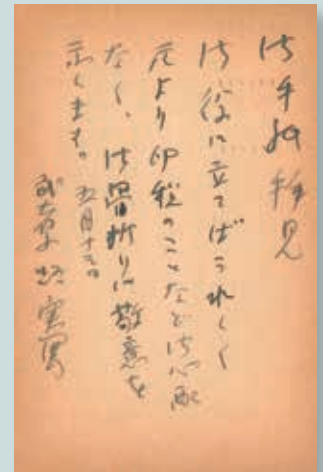 御手紙拝見
御役に立てばうれしく
元より印税のことなど御心配
なく、御骨折りに敬意を
表します。
五月十七日
武者小路実篤